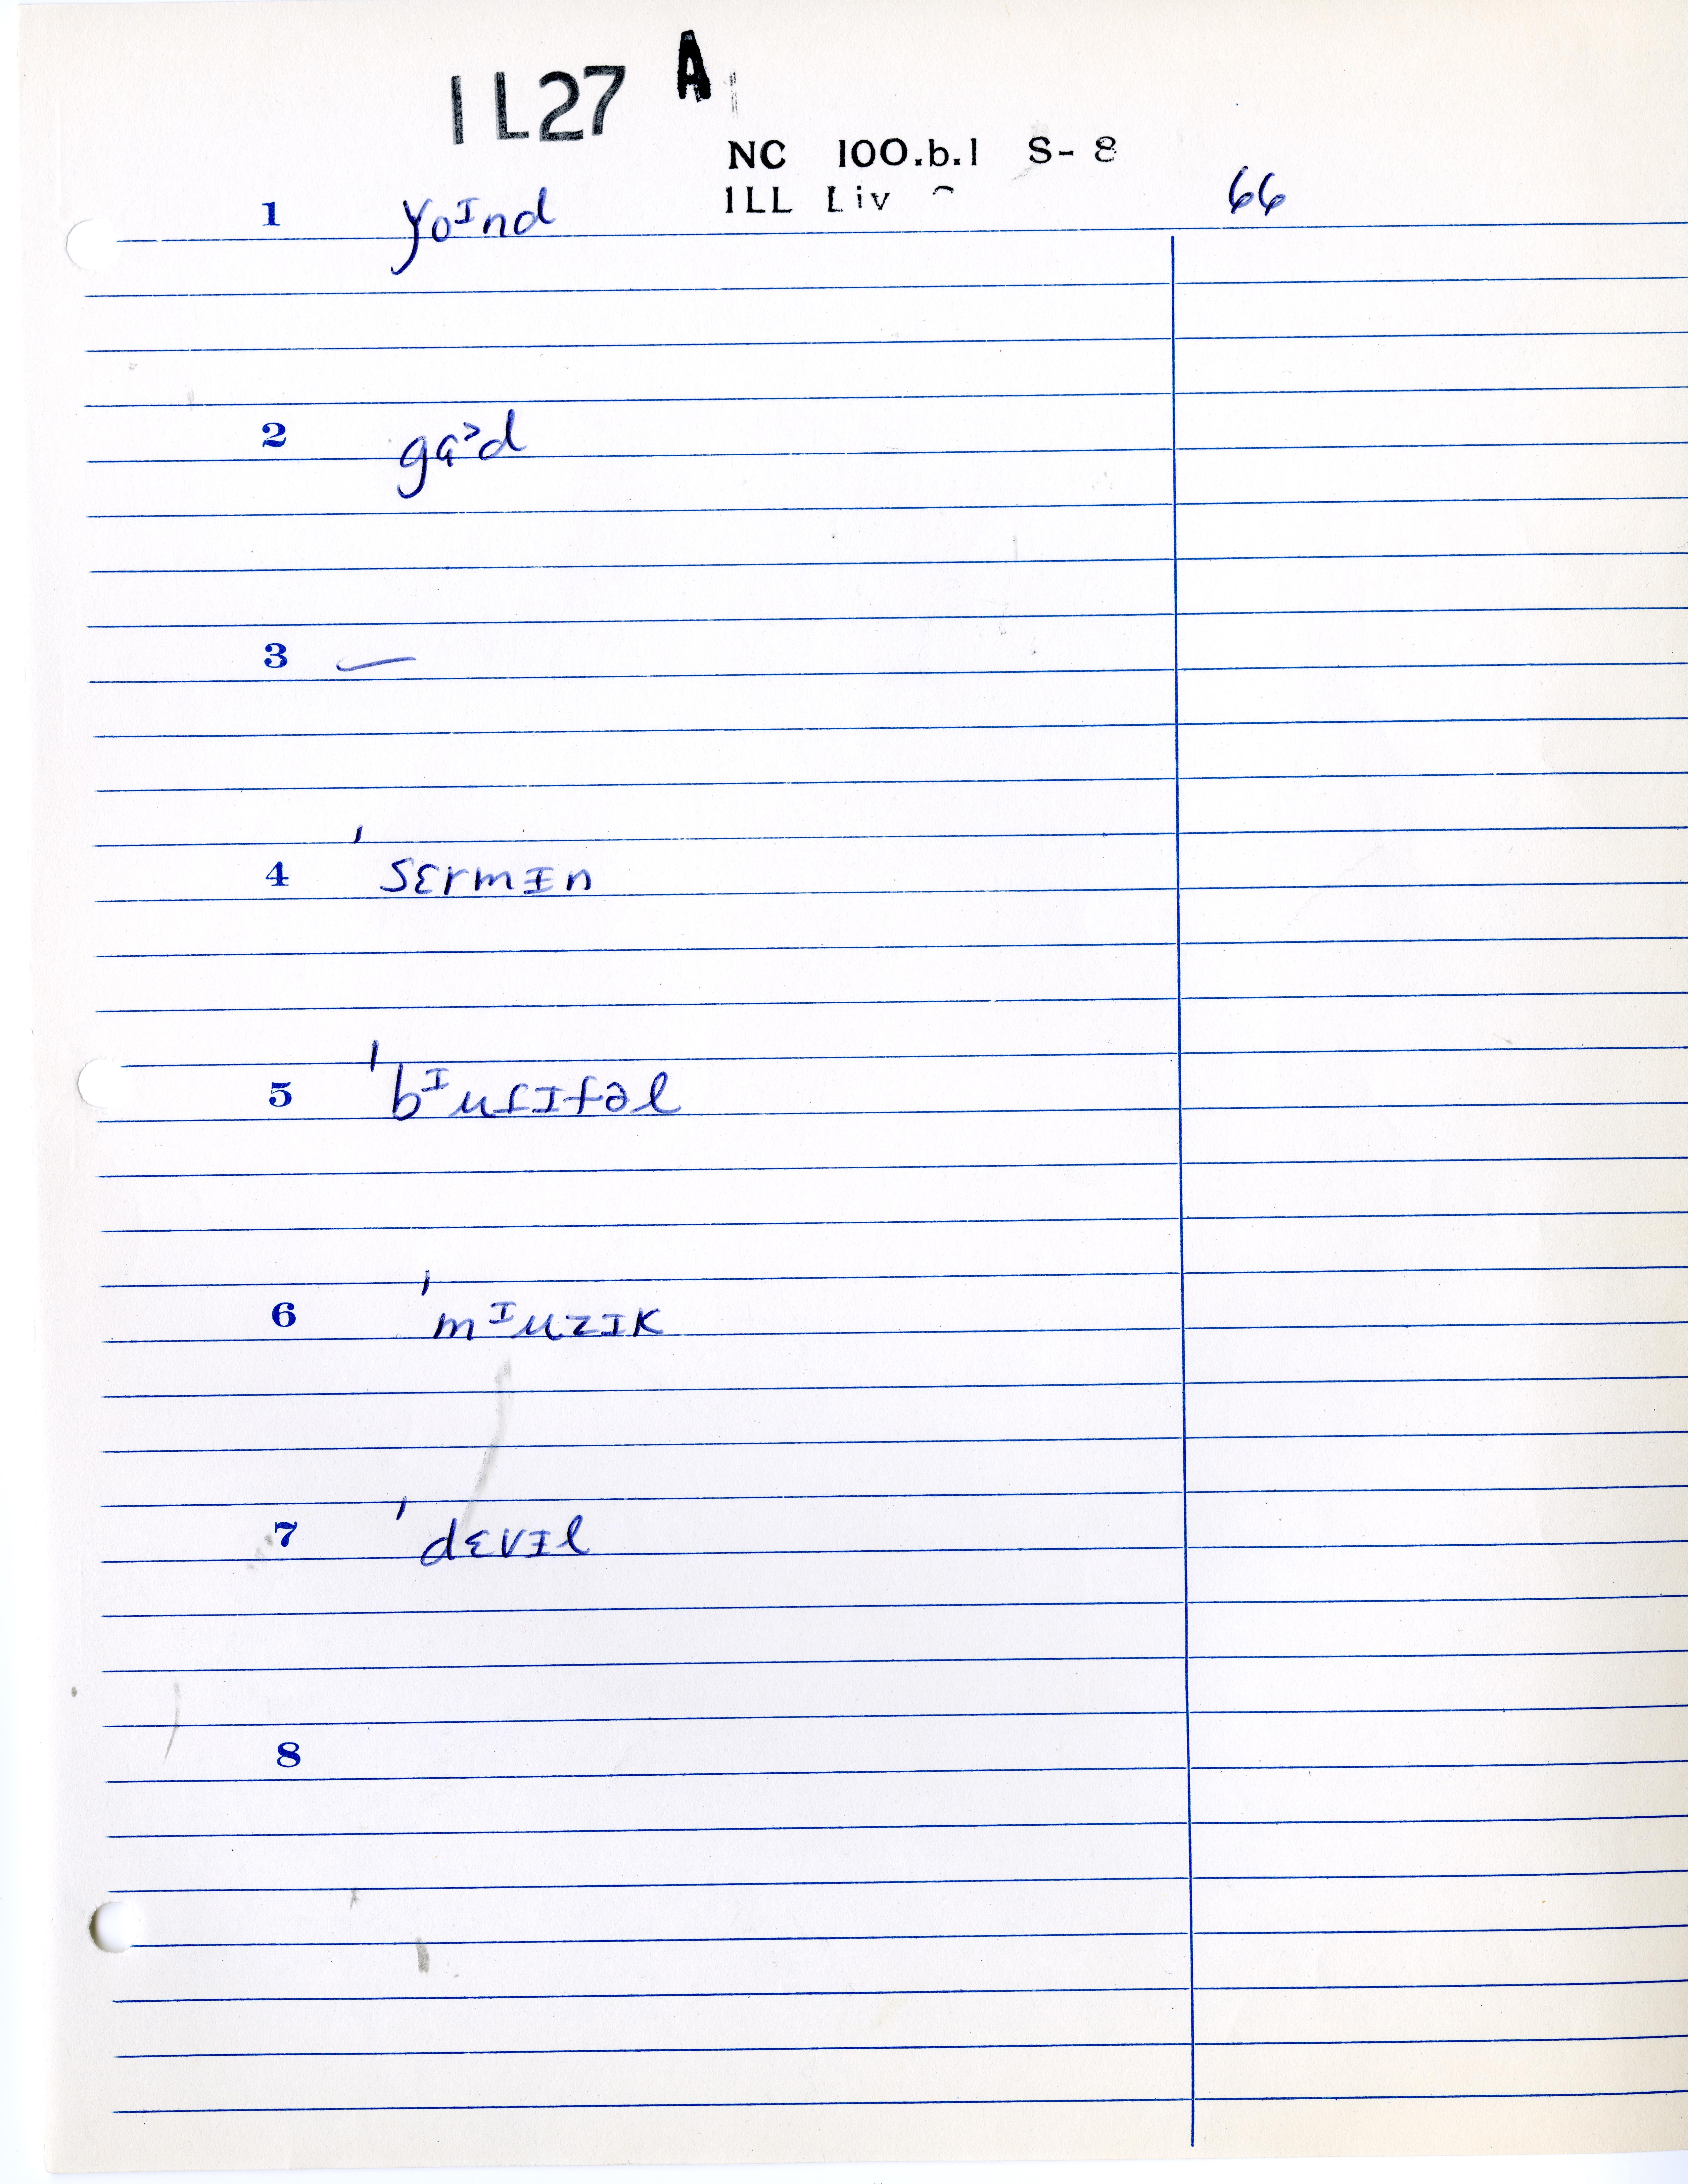 IL27 A
NC 100.b.1 S-8
ILL Liv
66
1 yoᴵnd
2 gɑ˃d
3 —
4 ˈsɛrmɪn
5 ˈbᴵuɾɪfəl
6 ˈmᴵuzɪk
7 ˈdɛvɪl
8